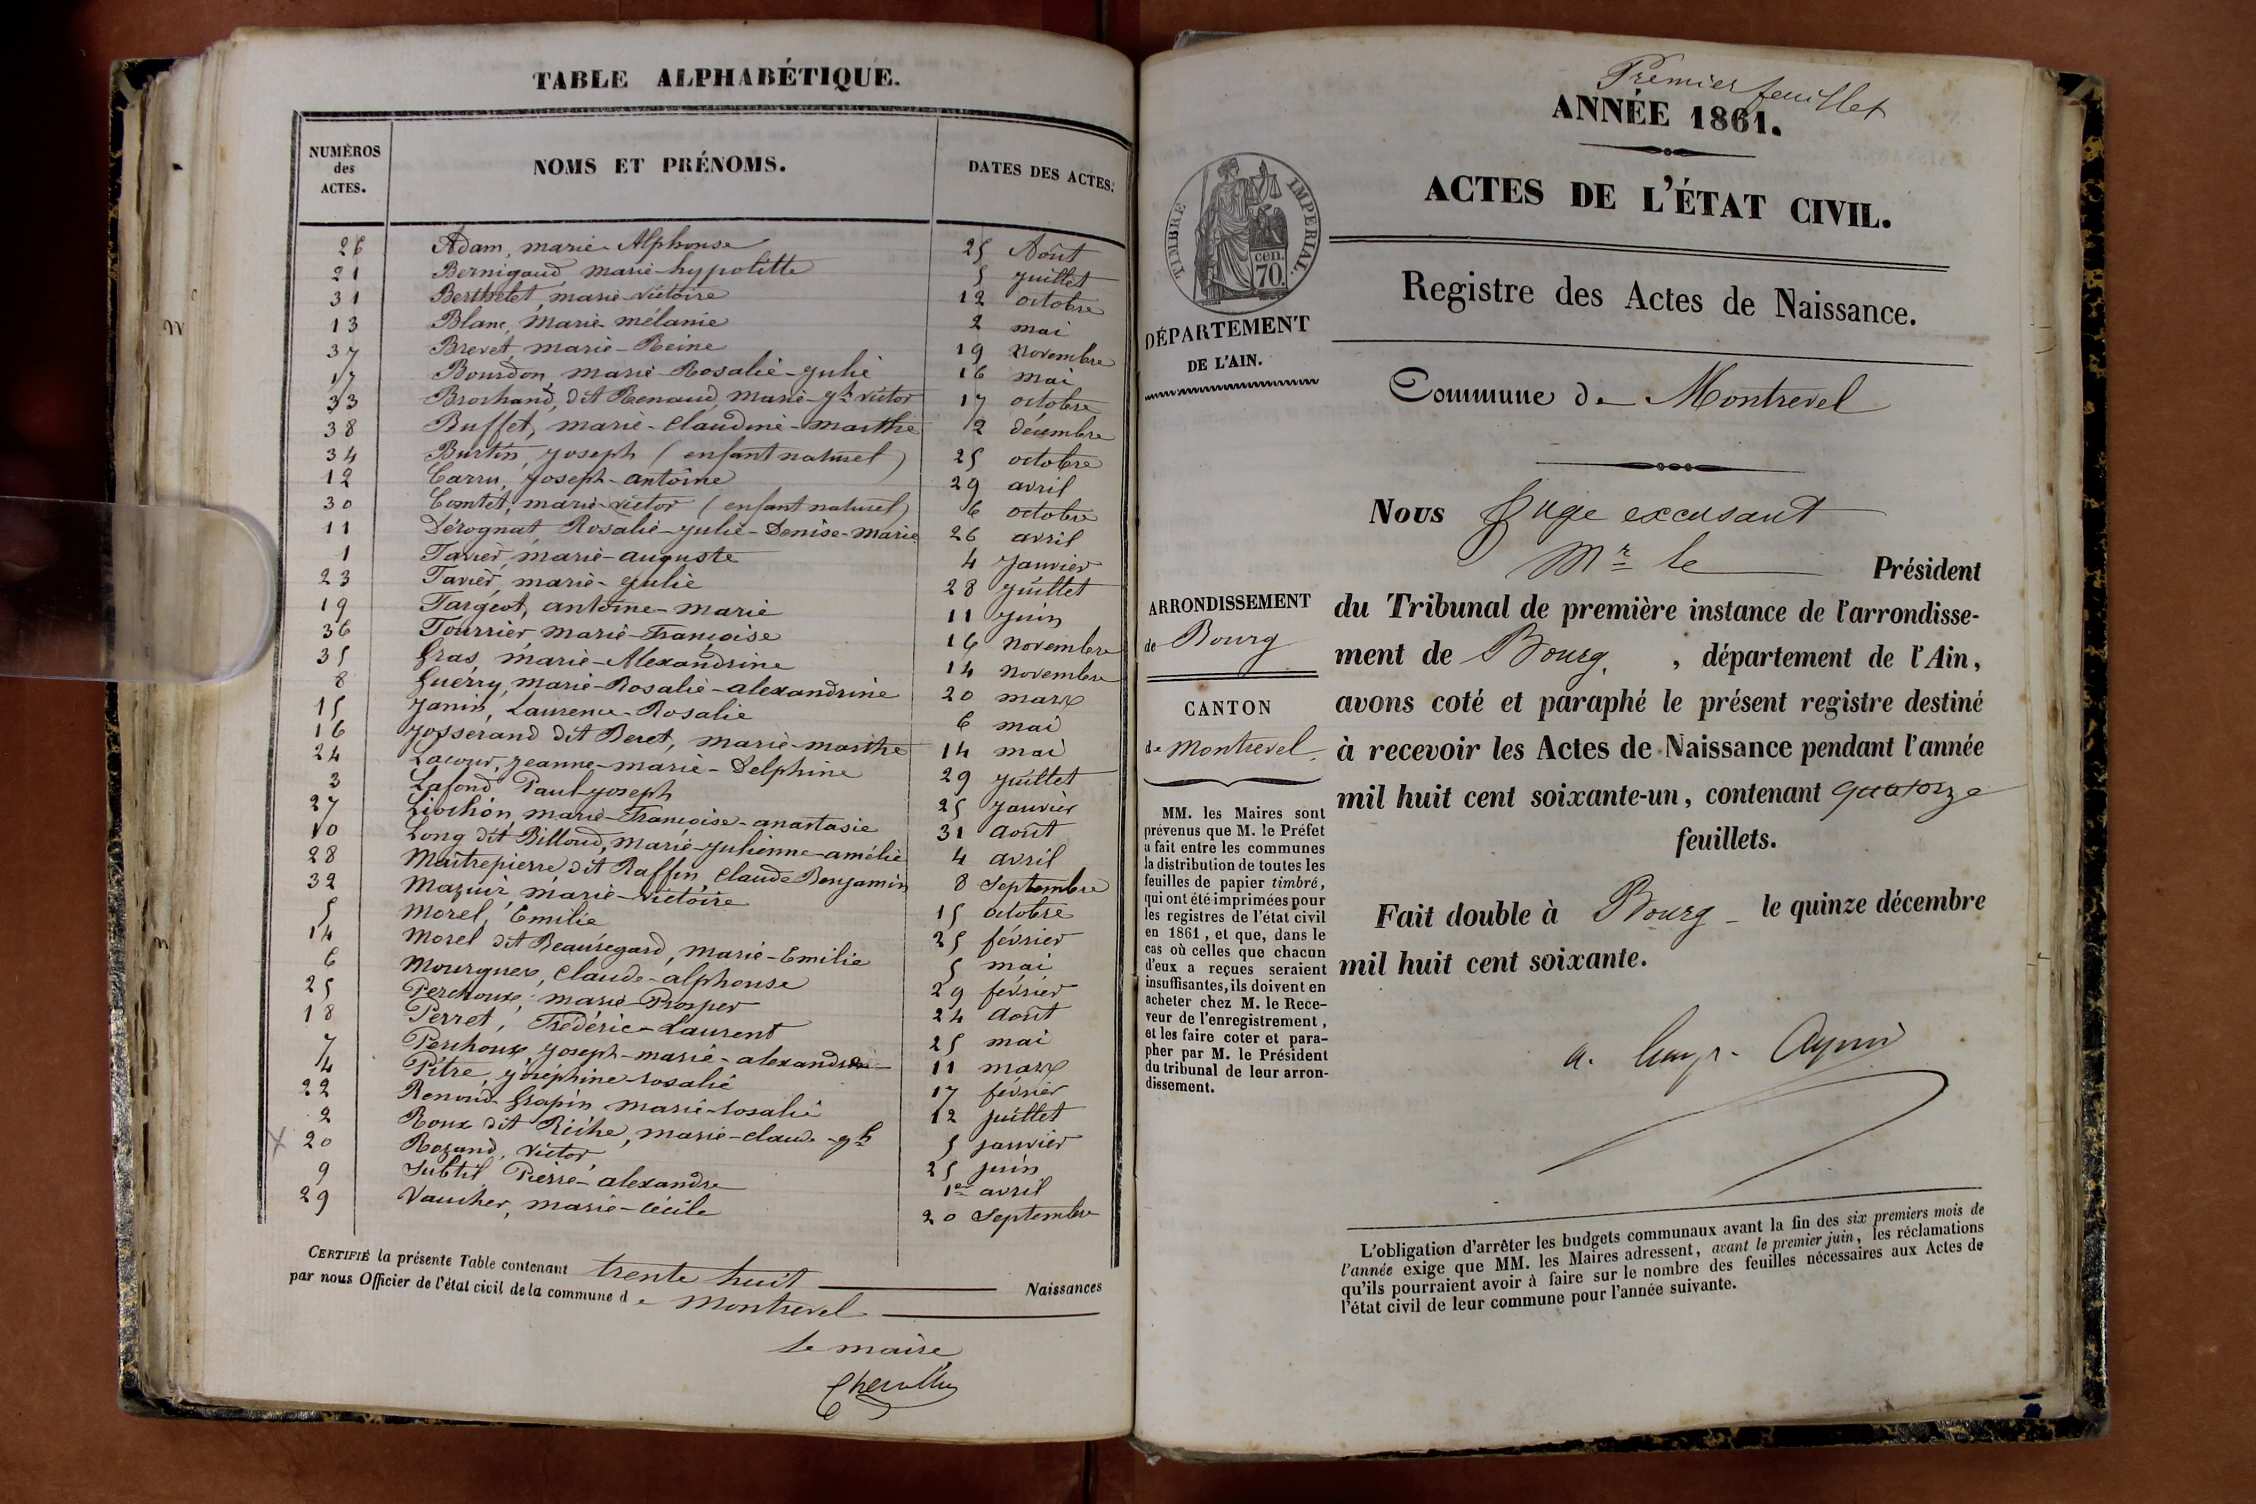 TABLE ALPHABÉTIQUE.
NUMÉROS des ACTES. NOMS ET PRÉNOMS. DATES DES ACTES.
26 Adam, marie-Alphonse 25 Août
21 Bernigaud, marie-hypolitte 5 juillet
31 Berthelet, marie-victoire 12 octobre
13 Blanc, marie-mélanie 2 mai
37 Brevet, marie-Reine 19 novembre
17 Bourdon, marie-Rosalie-julie 16 mai
33 Brochand, dit Renaud, marie-jh victor 17 octobre
38 Buffet, marie-Claudine-marthe 2 décembre
34 Burtin, joseph (enfant naturel) 25 octobre
12 Carru, joseph-antoine 29 avril
30 Comtet, marie-victor (enfant naturel) 6 octobre
11 Dérognat, Rosalie-julie-Denise-marie 26 avril
1 Favier, marie-auguste 4 janvier
23 Favier, marie-julie 28 juillet
19 Fargeot, antoine-marie 11 juin
36 Fourrier, marie-Françoise 16 novembre
35 Gras, marie-Alexandrine 14 novembre
8 Guérry, marie-Rosalie-alexandrine 20 mars
15 Janin, Laurence-Rosalie 6 mai
16 Josserand dit Beret, marie-marthe 14 mai
24 Lacour, jeanne-marie-Delphine 29 juillet
3 Lafond, Paul-joseph 25 janvier
27 Liochon, marie-Françoise-anastasie 31 août
10 Long dit Billoud, marie-julienne-amélie 4 avril
28 Maitrepierre dit Raffin, Claude Benjamin 8 Septembre
32 Mazuir, marie-victoire 15 octobre
5 Morel, Emilie 25 février
14 Morel dit Beauregard, marie-Emilie 5 mai
6 Mourgues, Claude-alphonse 29 février
25 Perchoux, marie-Prosper 24 août
18 Perret, Frédéric-Laurent 25 mai
7 Perchoux, joseph-marie-alexandre 11 mars
4 Pitre, joséphine-rosalie 17 février
22 Renoud-Grapin marie-rosalie 12 juillet
2 Roux dit Riche, marie-claude-jh 5 janvier
X 20 Rozand, victor 25 juin
9 Subtil, Pierre-alexandre 1er avril
29 Vaucher, marie-Cécile 20 Septembre
CERTIFIÉ la présente Table contenant trente huit Naissances
par nous Officier de l'état civil de la commune de Montrevel
Le maire
Premier feuillet
ANNÉE 1861.
ACTES DE L'ÉTAT CIVIL.
TIMBRE IMPÉRIAL.
cen.
70.
DÉPARTEMENT
DE L'AIN.
Registre des Actes de Naissance.
Commune de Montrevel
Nous Juge excusant
Mr le Président
du Tribunal de première instance de l'arrondisse-
ment de Bourg, département de l'Ain,
avons coté et paraphé le présent registre destiné
à recevoir les Actes de Naissance pendant l'année
mil huit cent soixante-un, contenant quatorze
feuillets.
Fait double à Bourg le quinze décembre
mil huit cent soixante.
ARRONDISSEMENT
de Bourg
CANTON
de Montrevel.
MM. les Maires sont
prévenus que M. le Préfet
a fait entre les communes
la distribution de toutes les
feuilles de papier timbré,
qui ont été imprimées pour
les registres de l'état civil
en 1861, et que, dans le
cas où celles que chacun
d'eux a reçues seraient
insuffisantes, ils doivent en
acheter chez M. le Rece-
veur de l'enregistrement,
et les faire coter et para-
pher par M. le Président
du tribunal de leur arron-
dissement.
L'obligation d'arrêter les budgets communaux avant la fin des six premiers mois de
l'année exige que MM. les Maires adressent, avant le premier juin, les réclamations
qu'ils pourraient avoir à faire sur le nombre des feuilles nécessaires aux Actes de
l'état civil de leur commune pour l'année suivante.